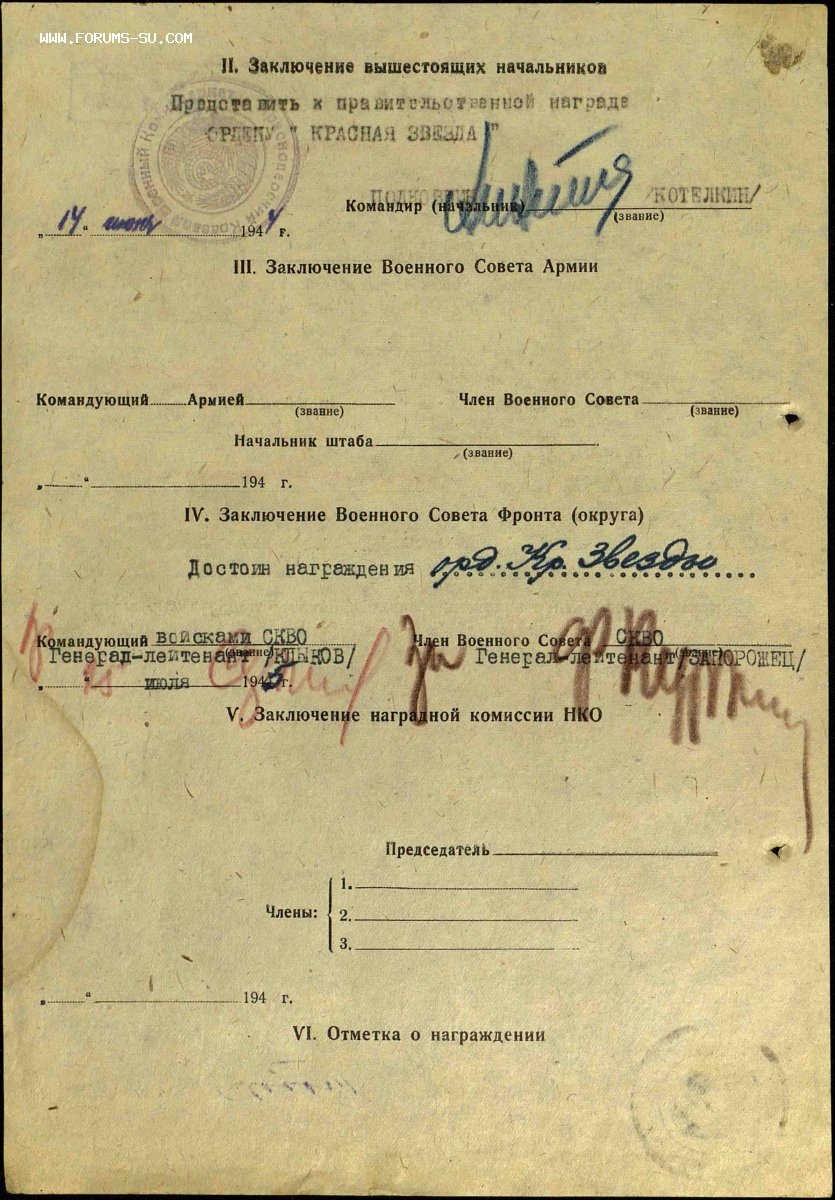 WWW.FORUMS-SU.COM
II. Заключение вышестоящих начальников
Представить к правительственной награде
ОРДЕНУ " КРАСНАЯ ЗВЕЗДА "
Командир (начальник) /КОТЕЛКИН/
(звание)
„14“ июня 1944 г.
III. Заключение Военного Совета Армии
Командующий Армией Член Военного Совета
(звание) (звание)
Начальник штаба
(звание)
„ “ 194 г.
IV. Заключение Военного Совета Фронта (округа)
Достоин награждения орд. Кр. Звезды
Командующий войсками СКВО Член Военного Совета СКВО
(звание) (звание)
Генерал-лейтенант /КЛЫКОВ/ За Генерал-лейтенант/ЗАПОРОЖЕЦ/
„ “ июля 1945 г.
V. Заключение наградной комиссии НКО
Председатель
Члены:
1.
2.
3.
„ “ 194 г.
VI. Отметка о награждении